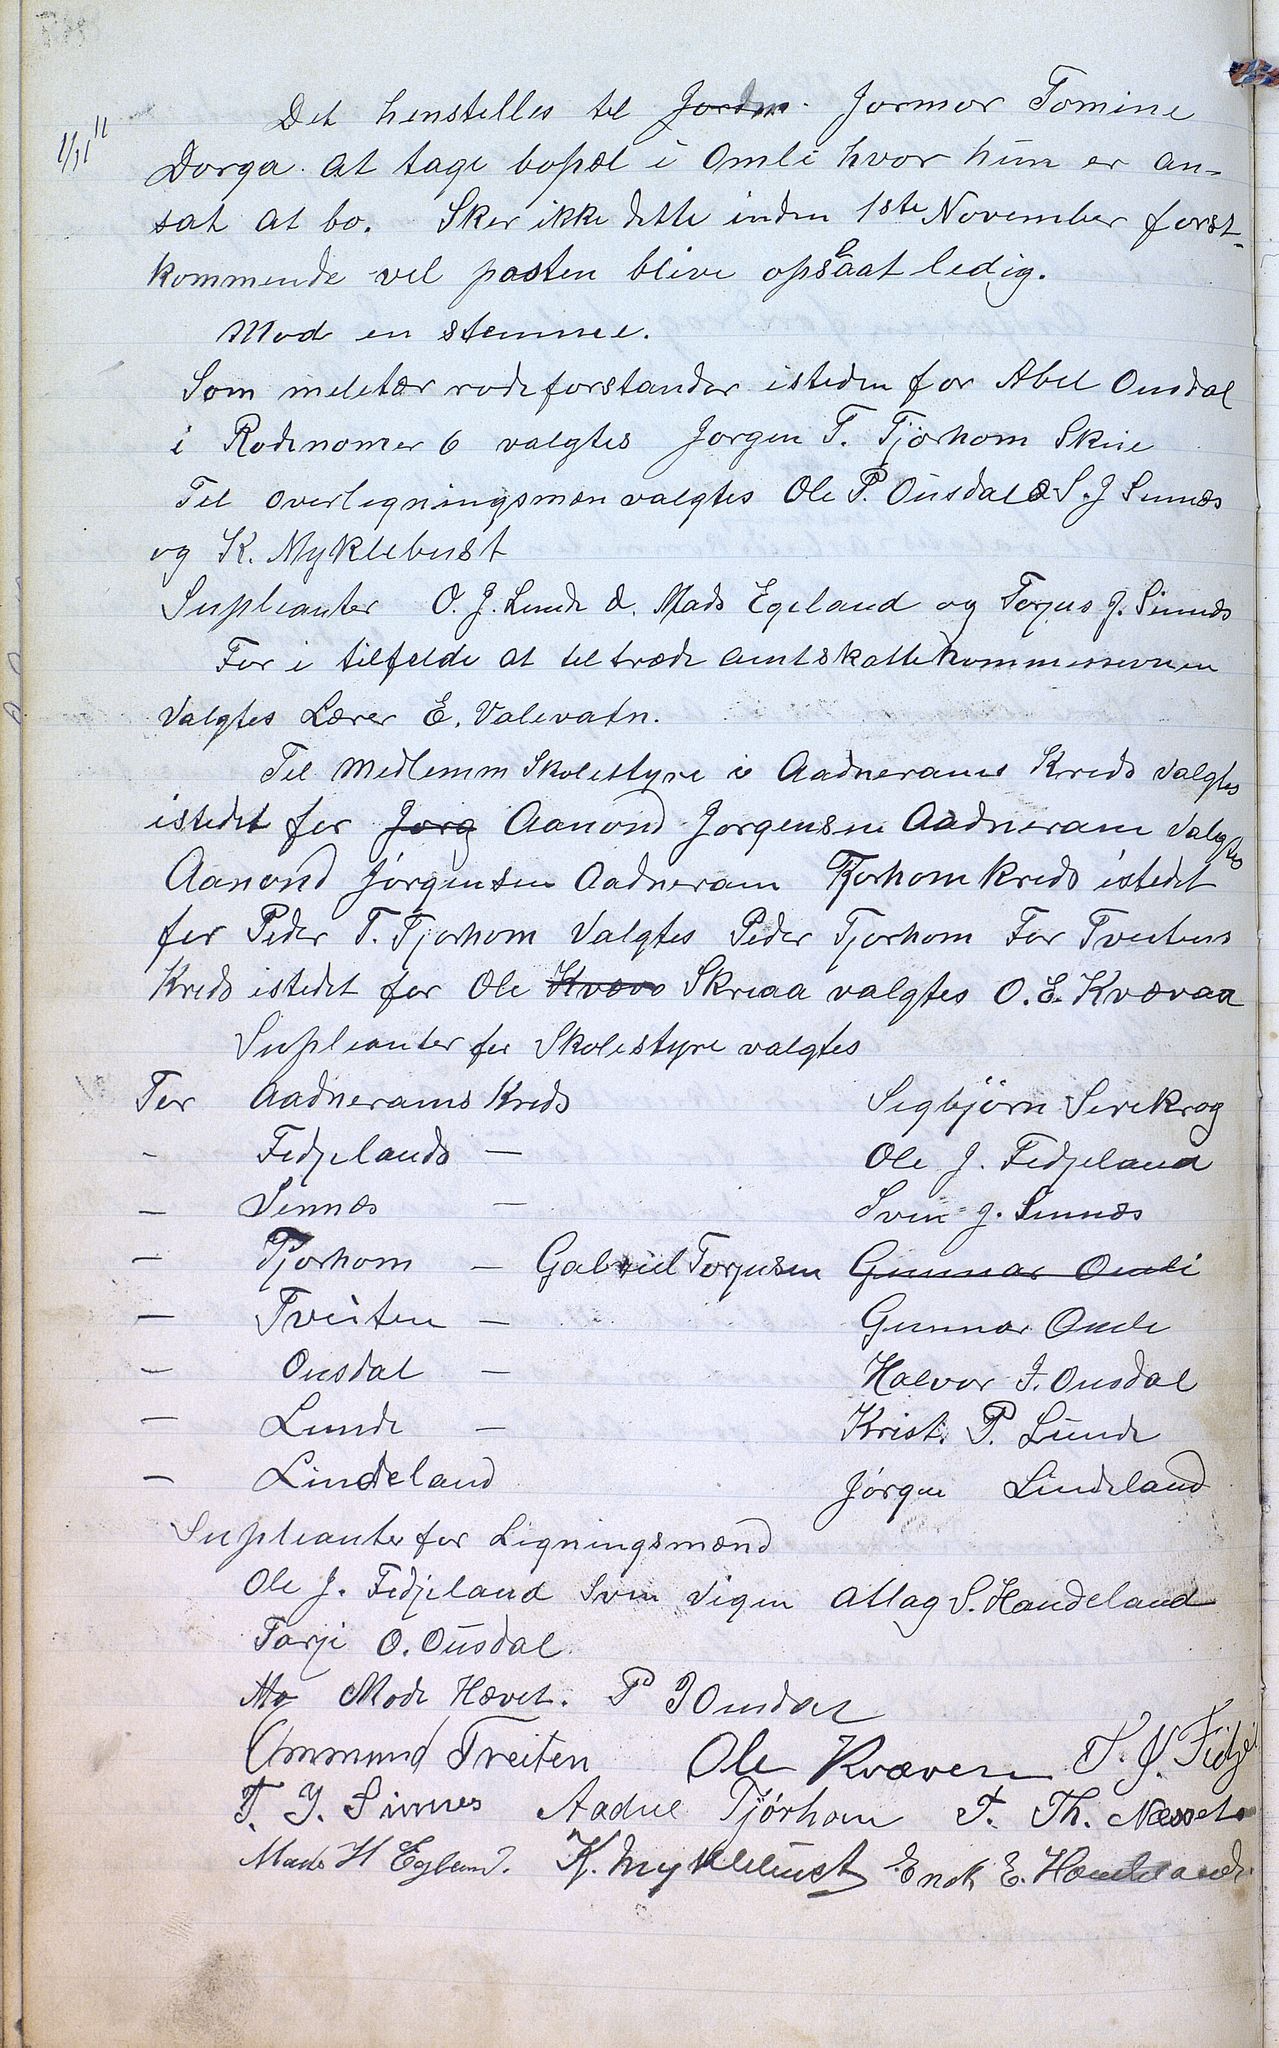 Det henstilles til Jordm. Jormor Tomine
1/11 11
Dorga. at tage bopæl i Omli hvor hun er an-
sat at bo. Sker ikke dette inden 1ste November først-
kommende vil posten blive opslaat ledig.
Mod en stemme.
Som meletær rodeforstander isteden for Abel Ousdal
i Rodenomer 6 valgtes Jørgen T. Tjørhom Skeie
Til overligningsmæn valgtes Ole P. Ousdal & S. J Sinnæs
og K. Myklebust
Supleanter O. J. Lunde d. Mads Egeland og Torjus J. Sinnæs
For i tilfelde at tiltræde amtskattekommessionen
Valgtes Lærer E. Valevatn.
Til Medlemm Skolestyre i Aadnerams Kreds valgtes
istedet for Jørg Aanond Jørgensen Aadneram Valgtes
Aanond Jørgensen Aadneram Tjorhom kreds istedet
for Peder T. Tjorhom Valgtes Peder Tjorhom For Tveitens
Kreds istedet for Ole Kvæve Skreaa valgtes O. E. Kvævaa
Supleanter for Skolestyre valgtes
For Aadnerams Kreds Sigbjørn Sirekrog
- Fedjelands — Ole J. Fedjeland
- Sinnæs — Sven J. Sinnæs
- Tjorhom — Gabriel Torjusen Gunnar Omli
- Tveiten — Gunnar Omli
- Ousdal — Halvor I. Ousdal
- Lunde — Krist. P. Lunde
- Lindeland Jørgen Lindeland
Supleanter for Ligningsmænd
Ole J. Fedjeland Sven Vigen Atlag S. Handeland
Tarje O. Ousdal
Mø Møde Hævet. P J Ousdal
Ommund Treiten Ole Kvæven T. J. Fidjel
T. J. Sinnes Aadne Tjörhom T. Th. Næsset
Mads H Egeland. K. Myklebust Enok E. Handeland.